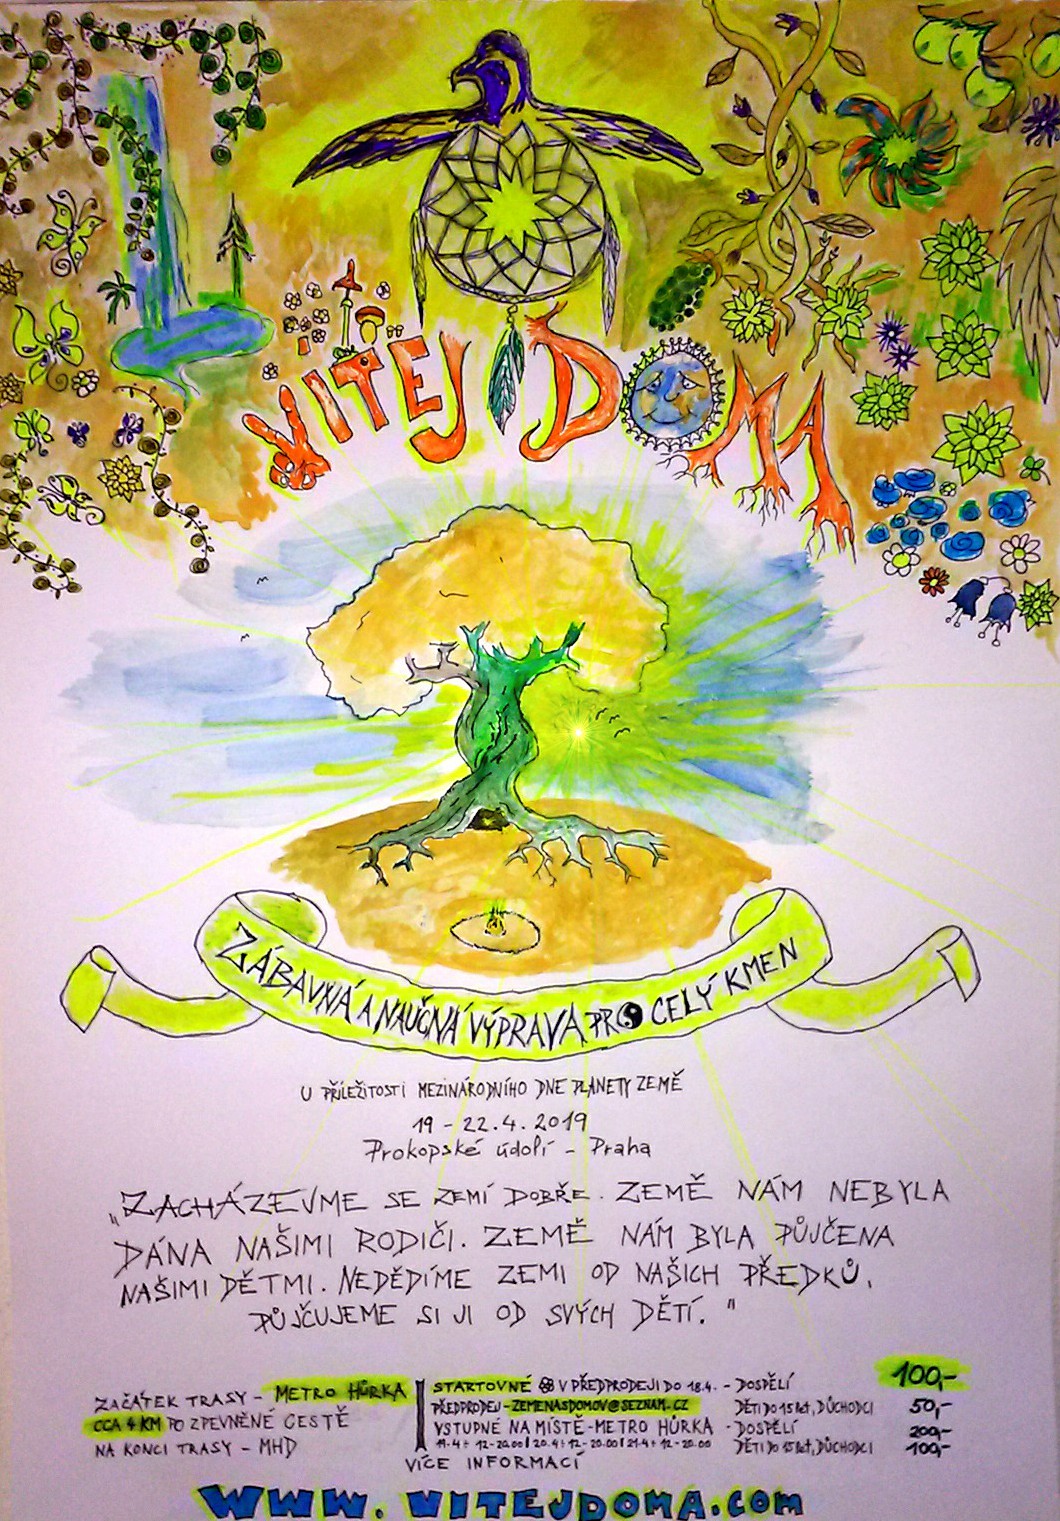 VÍTEJ DOMA
ZÁBAVNÁ A NAUČNÁ VÝPRAVA PRO CELÝ KMEN
U PŘÍLEŽITOSTI MEZINÁRODNÍHO DNE PLANETY ZEMĚ
19 - 22.4. 2019
Prokopské údolí - Praha
„ZACHÁZEJME SE ZEMÍ DOBŘE. ZEMĚ NÁM NEBYLA
DÁNA NAŠIMI RODIČI. ZEMĚ NÁM BYLA PŮJČENA
NAŠIMI DĚTMI. NEDĚDÍME ZEMI OD NAŠICH PŘEDKŮ,
PŮJČUJEME SI JI OD SVÝCH DĚTÍ."
ZAČÁTEK TRASY - METRO HŮRKA
CCA 4 KM PO ZPEVNĚNÉ CESTĚ
NA KONCI TRASY - MHD
STARTOVNÉ V PŘEDPRODEJI DO 18.4. - DOSPĚLÍ 100,-
PŘEDPRODEJ - ZEMENASDOMOV@SEZNAM.CZ DĚTI DO 15 let, DŮCHODCI 50,-
VSTUPNÉ NA MÍSTĚ - METRO HŮRKA - DOSPĚLÍ 200,-
19.4: 12-20.00 | 20.4: 12-20.00 | 21.4: 12-20.00 DĚTI DO 15 let, DŮCHODCI 100,-
VÍCE INFORMACÍ
WWW.VITEJDOMA.COM